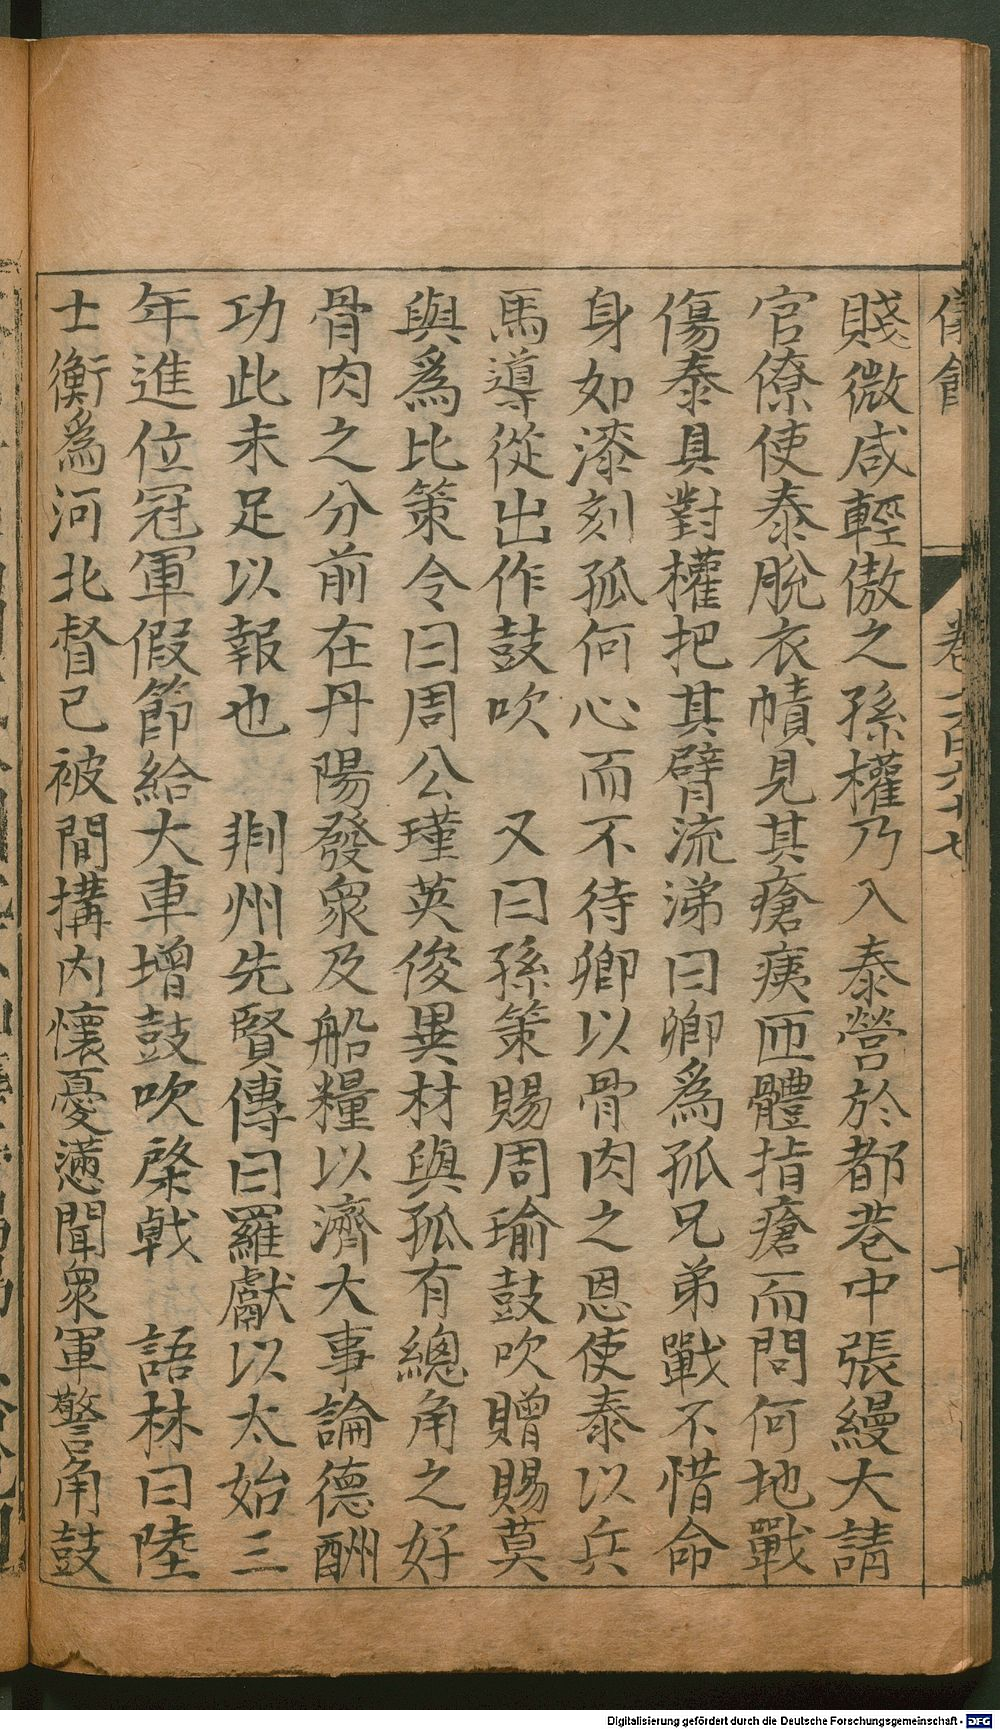 賤微咸輕傲之孫權乃入泰營於都巷中張縵大請
官僚使泰脫衣幘見其瘡痍匝體指瘡而問何地戰
傷泰具對權把其臂流涕曰卿為孤兄弟戰不惜命
身如漆刻孤何心而不待卿以骨肉之恩使泰以兵
馬導從出作鼓吹 又曰孫策賜周瑜鼓吹贈賜莫
與爲比策令曰周公瑾英俊異材與孤有總角之好
骨肉之分前在丹陽發衆及船糧以濟大事論德酬
功此未足以報也 荆州先賢傳曰羅獻以太始三
年進位冠軍假節給大車增鼓吹棨戟 語林曰陸
士衡爲河北督已被間搆内懷憂懣聞衆軍警角鼓
Digitalisierung gefördert durch die Deutsche Forschungsgemeinschaft - DFG